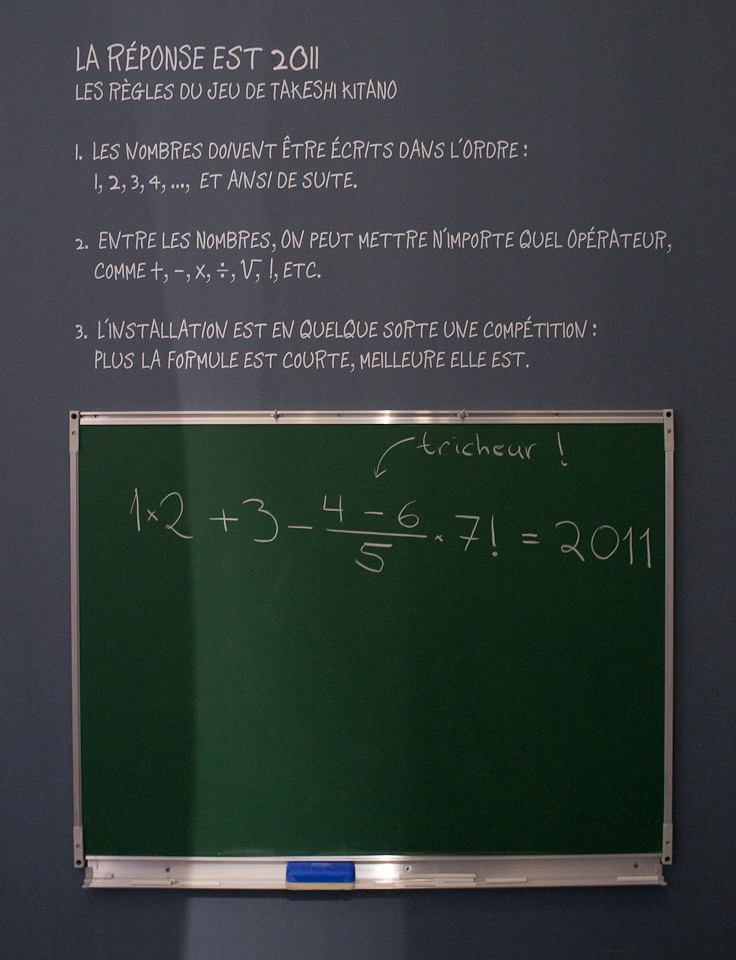 LA RÉPONSE EST 2011
LES RÈGLES DU JEU DE TAKESHI KITANO
1. LES NOMBRES DOIVENT ÊTRE ÉCRITS DANS L'ORDRE :
1, 2, 3, 4, ..., ET AINSI DE SUITE.
2. ENTRE LES NOMBRES, ON PEUT METTRE N'IMPORTE QUEL OPÉRATEUR,
COMME +, -, x, ÷, √, !, ETC.
3. L'INSTALLATION EST EN QUELQUE SORTE UNE COMPÉTITION :
PLUS LA FORMULE EST COURTE, MEILLEURE ELLE EST.
tricheur !
1×2 + 3 - (4 - 6)/5 · 7! = 2011